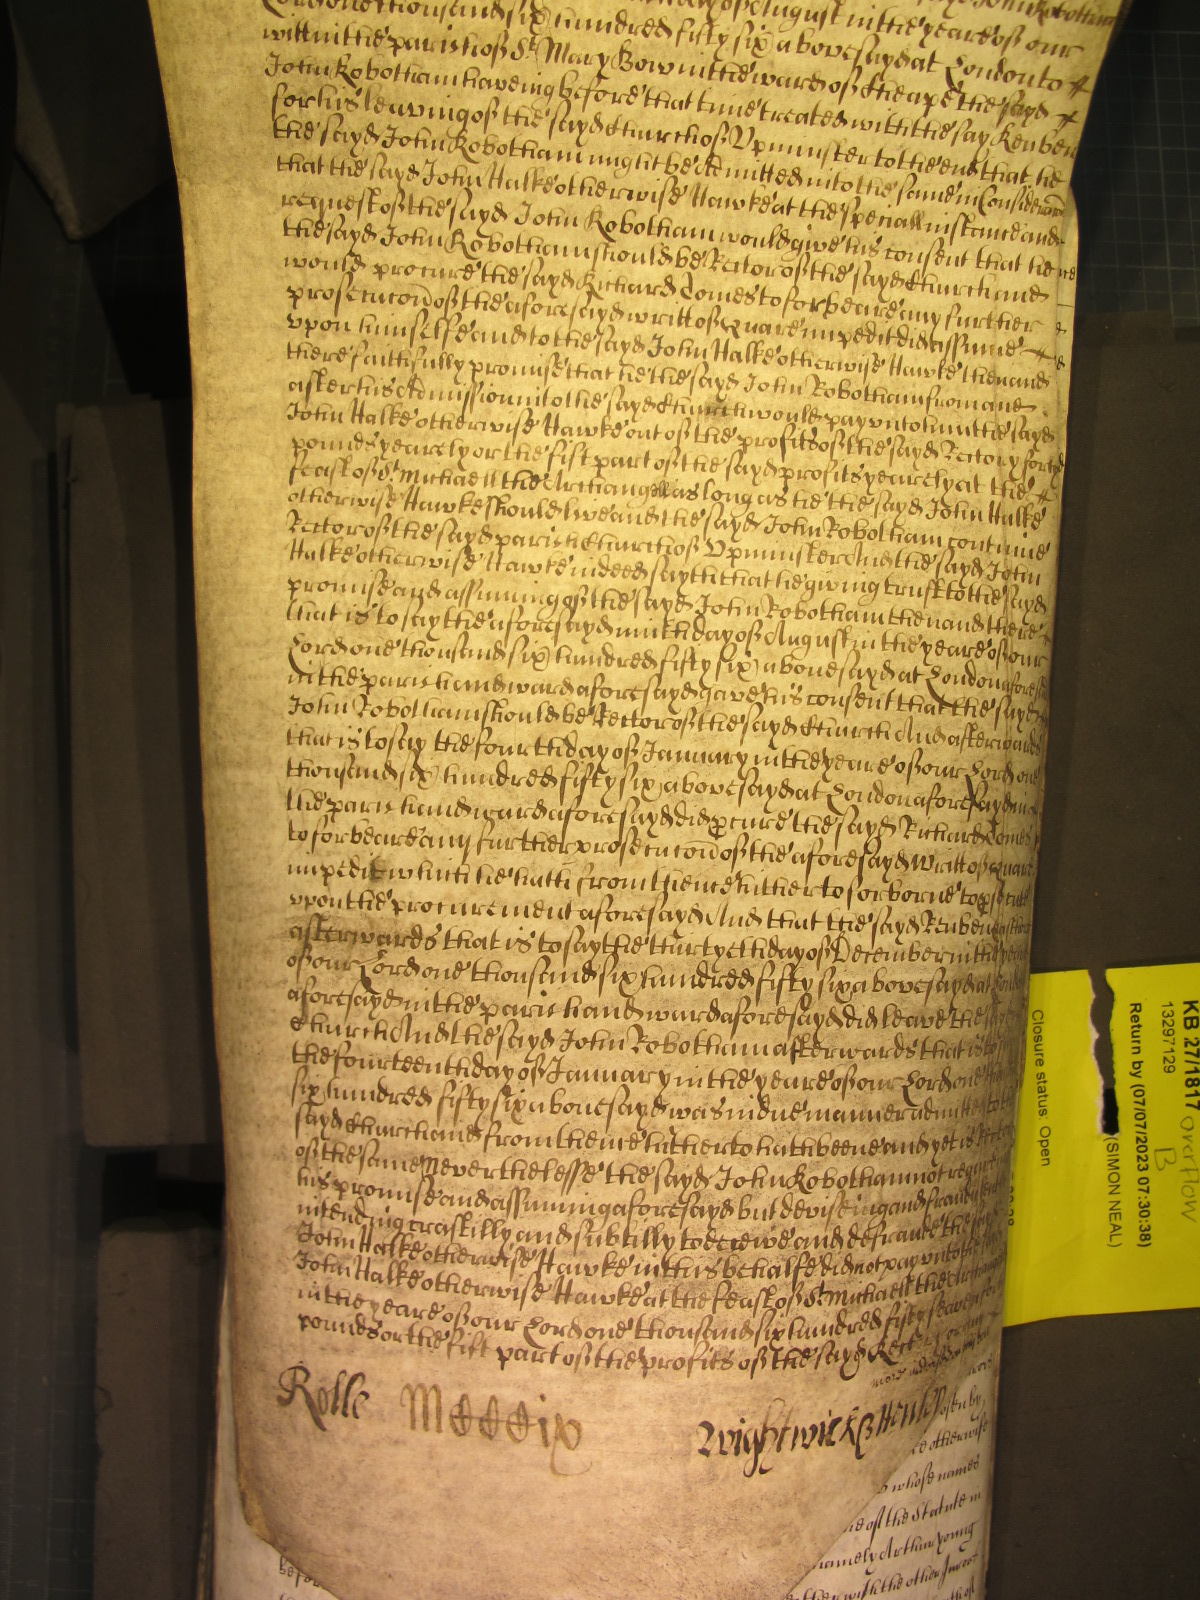 Lord one thousand six hundred fifty six abovesayd at London to
witt in the parish of St Mary Bow in the ward of Cheape the sayd
John Robotham haveing before that time treated with the say Reuben
for his leaving of the sayd Church of Upminster to the end that he
the sayd John Robotham might be Admitted into the same in Consideracon
that the sayd John Halke otherwise Hawke at the speciall instance and
request of the sayd John Robotham would give his consent that he
the sayd John Robotham should be Rector of the sayd Church and
would procure the sayd Richard Tomes to forbeare any further
prosecucon of the aforesayd writt of Quare impedit did assume
upon himselfe and to the sayd John Halke otherwise Hawke then and
there faithfully promise that he the sayd John Robotham from and
after his Admission into the sayd Church would pay unto him the sayd
John Halke otherwise Hawke out of the profits of the sayd Rectory forty
pounds yearely or the fift part of the sayd profits yearely at the
feast of St Michaell the Archangell as long as he the sayd John Halke
otherwise Hawke should live and the sayd John Robotham continue
Rector of the sayd parish Church of Upminster And the sayd John
Halke otherwise Hawke indeed sayth that he giving trust to the sayd
promise and assuming of the sayd John Robotham then and there
that is to say the aforesayd ninth day of August in the yeare of our
Lord one thousand six hundred fifty six abovesayd at London aforesayd
in the parish and ward aforesayd gave his consent that the sayd
John Robotham should be Rector of the sayd Church And afterwards
that is to say the fourth day of January in the yeare of our Lord one
thousand six hundred fifty six abovesayd at London aforesayd in
the parish and ward aforesayd did pcure the sayd Richard Tomes
to forbeare any further prosecucon of the aforesayd writt of Quare
impedit which he hath from thence hitherto forborne to psecute
upon the procurement aforesayd And that the sayd Reuben
afterwards that is to say the thirtyeth day of December in the yeare
of our Lord one thousand six hundred fifty six abovesayd at London
aforesayd in the parish and ward aforesayd did leave the sayd
Church And the sayd John Robotham afterwards that is to
the fourteenth day of January in the yeare of our Lord one
six hundred fifty six abovesayd was in due manner admitted
sayd Church and from thence hitherto hath beene and yet is
of the same Neverthelesse the sayd John Robotham not
his promise and assuming aforesayd but deviseing and
intending craftilly and subtilly to deceive and defraude the sayd
John Halke otherwise Hawke in this behalfe did not pay unto the
John Halke otherwise Hawke at the feast of St Michaell the
in the yeare of our Lord one thousand six hundred fifty seaven
pounds or the fift part of the profits of the sayd
Rolle
Wightwicke
whose names
of the Statute in
namely Arthur Young
with the other
KB 27/1817 overflow
B
13297129
Return by (07/07/2023 07:30:38)
(SIMON NEAL)
Closure status: Open